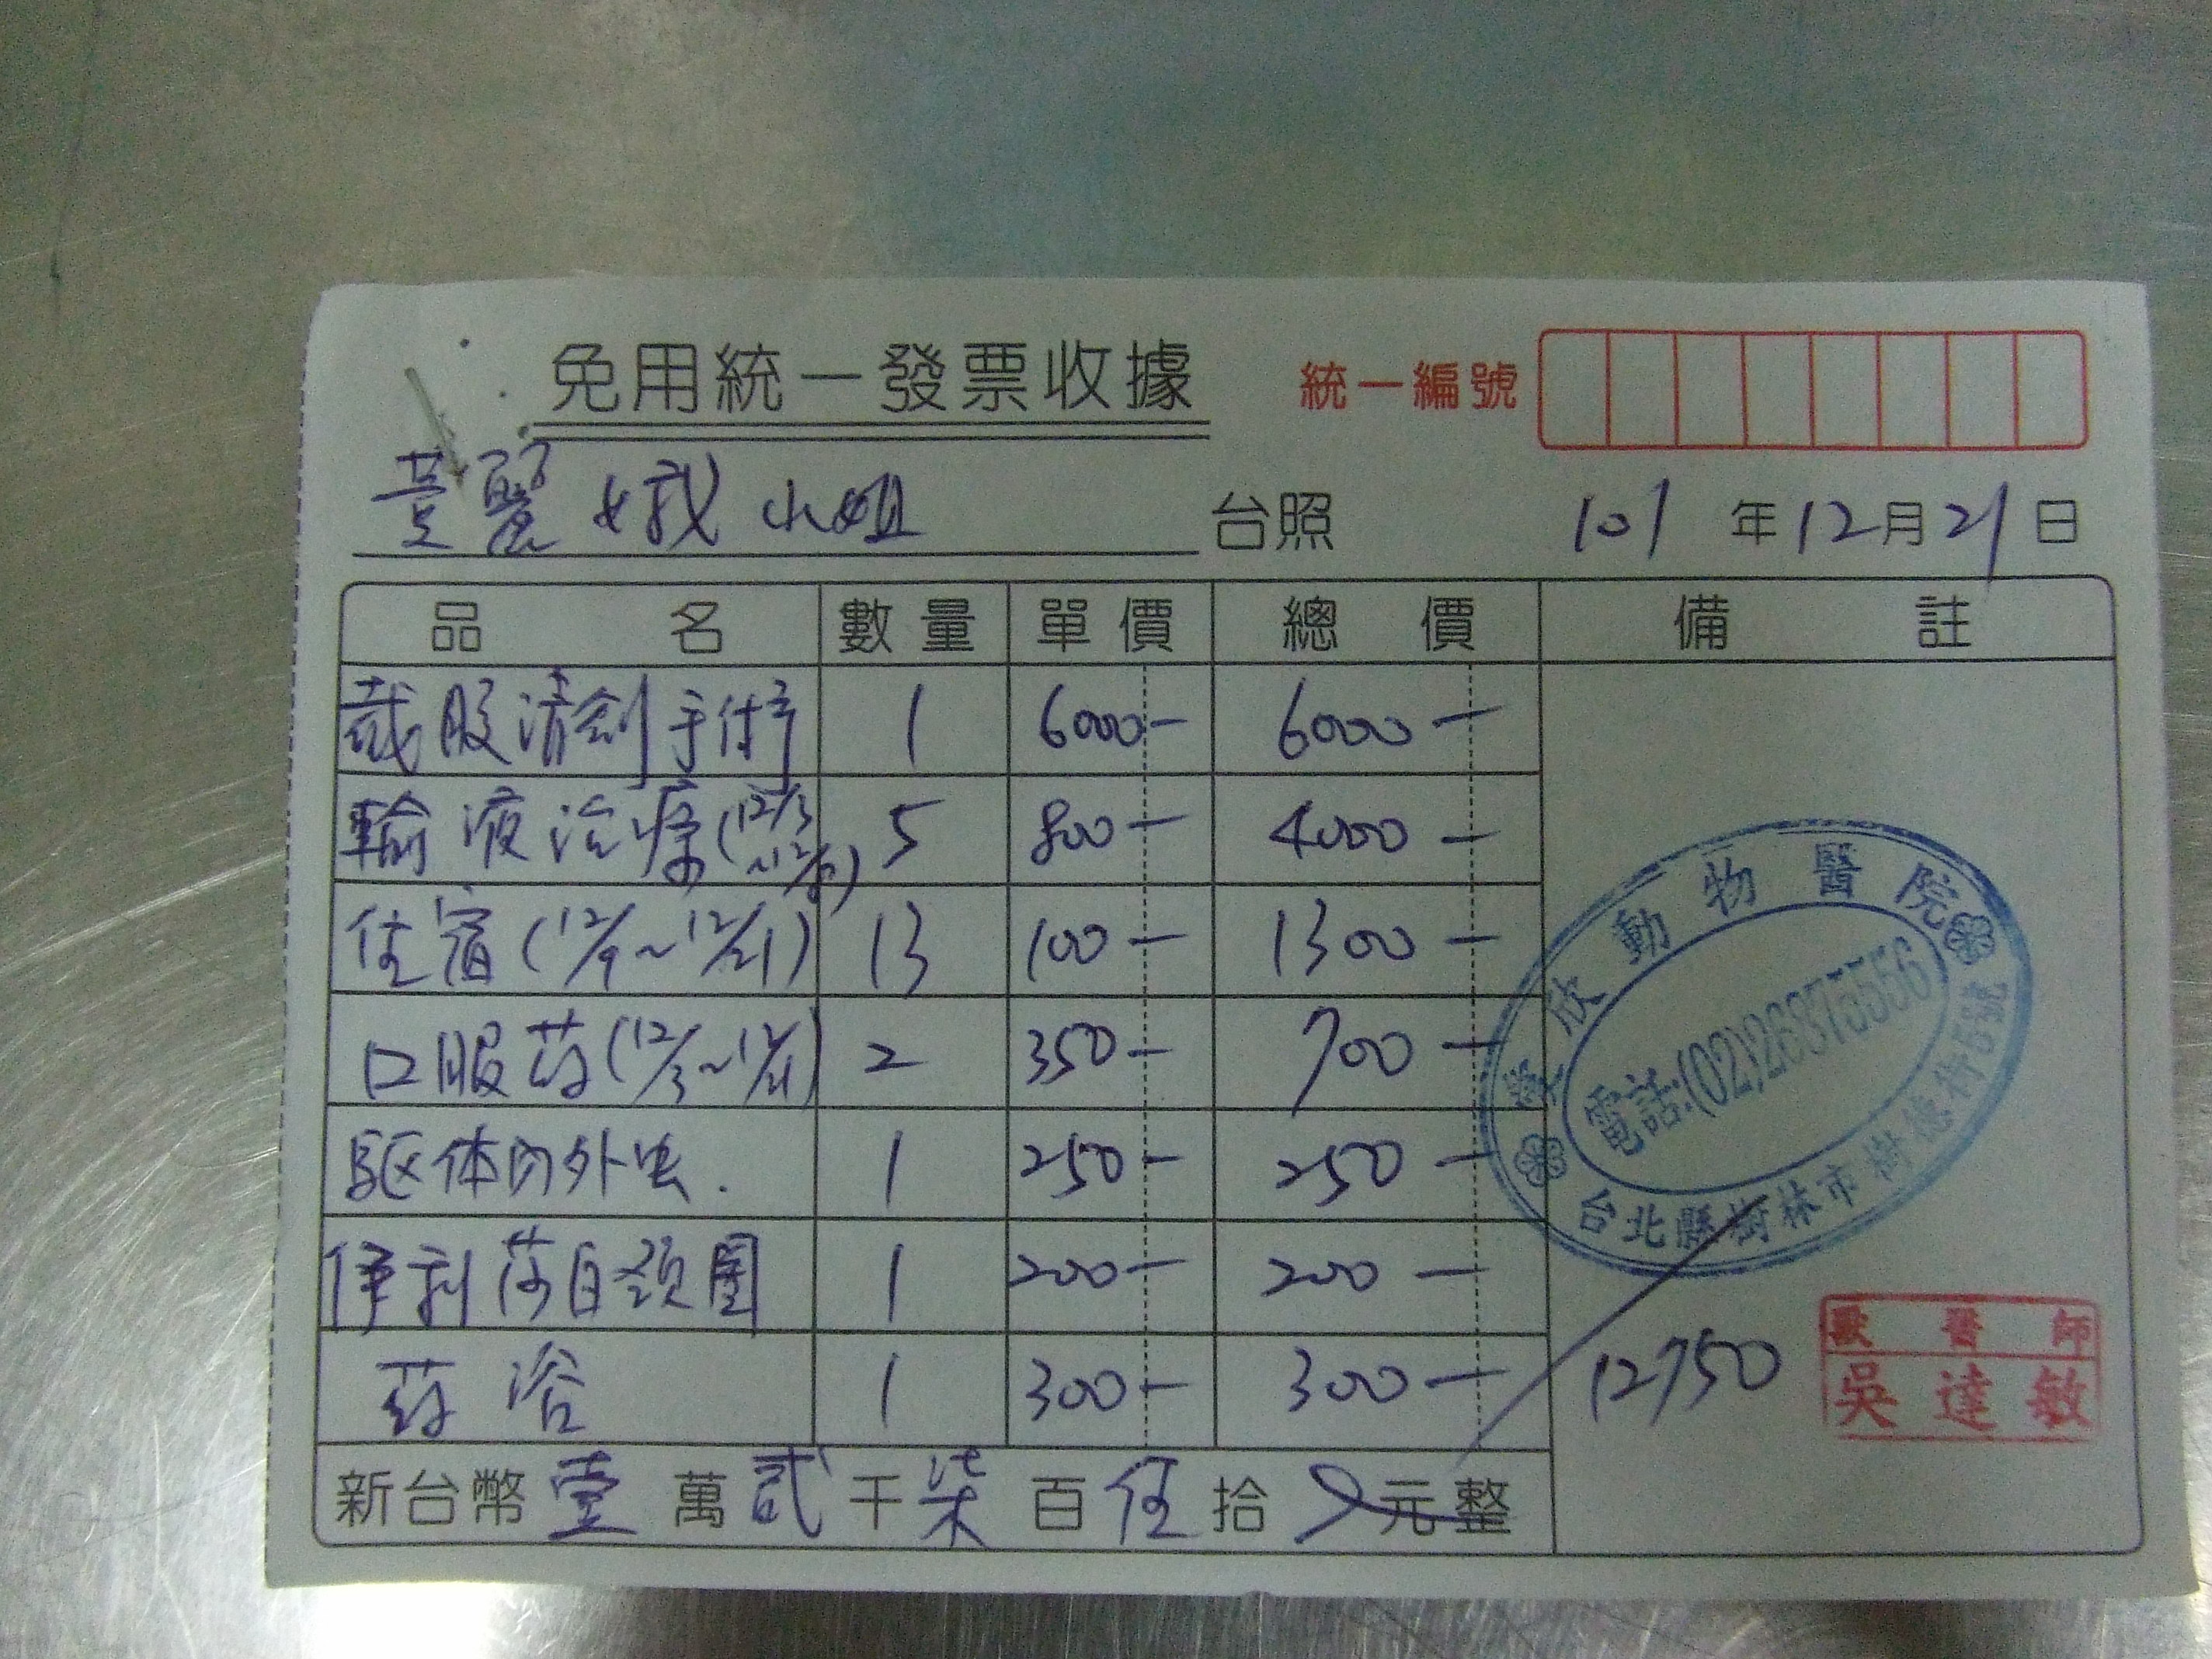 免用統一發票收據
統一編號
黃麗娥小姐 台照 101 年 12 月 21 日
品名 數量 單價 總價 備註
截肢清創手術 1 6000- 6000-
輸液治療(12/3~12/) 5 800- 4000-
住宿(12/9~12/21) 13 100- 1300-
口服药(12/3~12/21) 2 350- 700-
駆体內外虫. 1 250- 250-
伊利莎白頸圈 1 200- 200-
药浴 1 300- 300-
新台幣 壹 萬 貳 千 柒 百 伍 拾 元整
12750
欣動物醫院
電話:(02)26875556
台北縣樹林市樹德街5號
獸醫師
吳達敏